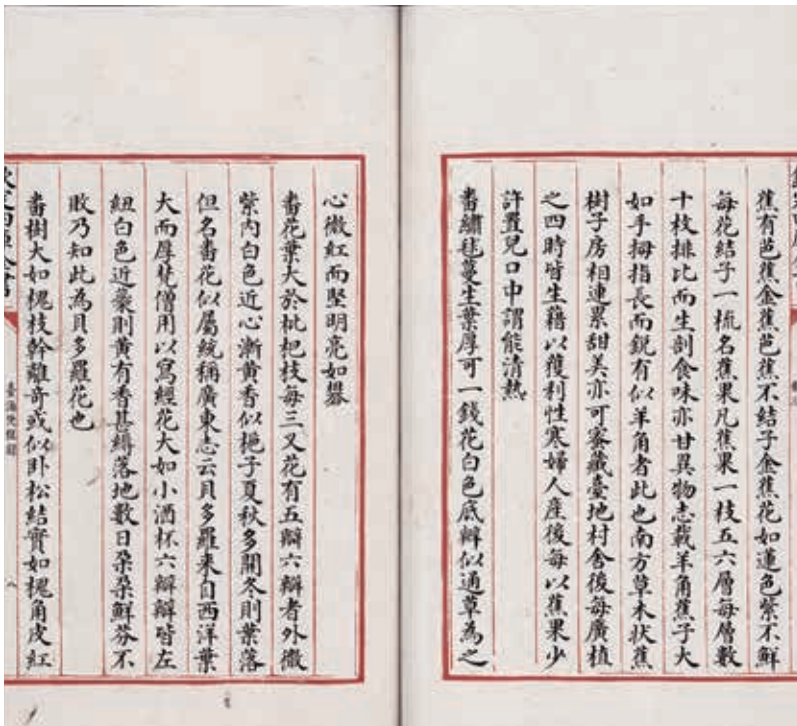 蕉有芭蕉金蕉芭蕉不結子金蕉花如蓮色紫不鮮
每花結子一梳名蕉果凡蕉果一枝五六層每層數
十枝排比而生剖食味亦甘異物志載羊角蕉子大
如手拇指長而銳有似羊角者此也南方草木狀蕉
樹子房相連累甜美亦可蜜藏臺地村舍後每廣植
之四時皆生藉以獲利性寒婦人產後每以蕉果少
許置兒口中謂能清熱
番繡毬蔓生葉厚可一錢花白色底瓣似通草為之
心微紅而堅明亮如
番花葉大於枇杷枝每三叉花有五瓣六瓣者外微
紫內白色近心漸黃香似梔子夏秋多開冬則葉落
但名番花似屬統稱廣東志云貝多羅來自西洋葉
大而厚梵僧用以寫經花大如小酒杯六瓣瓣皆左
紐白色近蘂則黃有香甚縟落地數日朶朶鮮芬不
敗乃知此為貝多羅花也
番樹大如槐枝幹離奇或似卧松結實如槐角皮紅
欽定四庫全書
臺海使槎錄
八